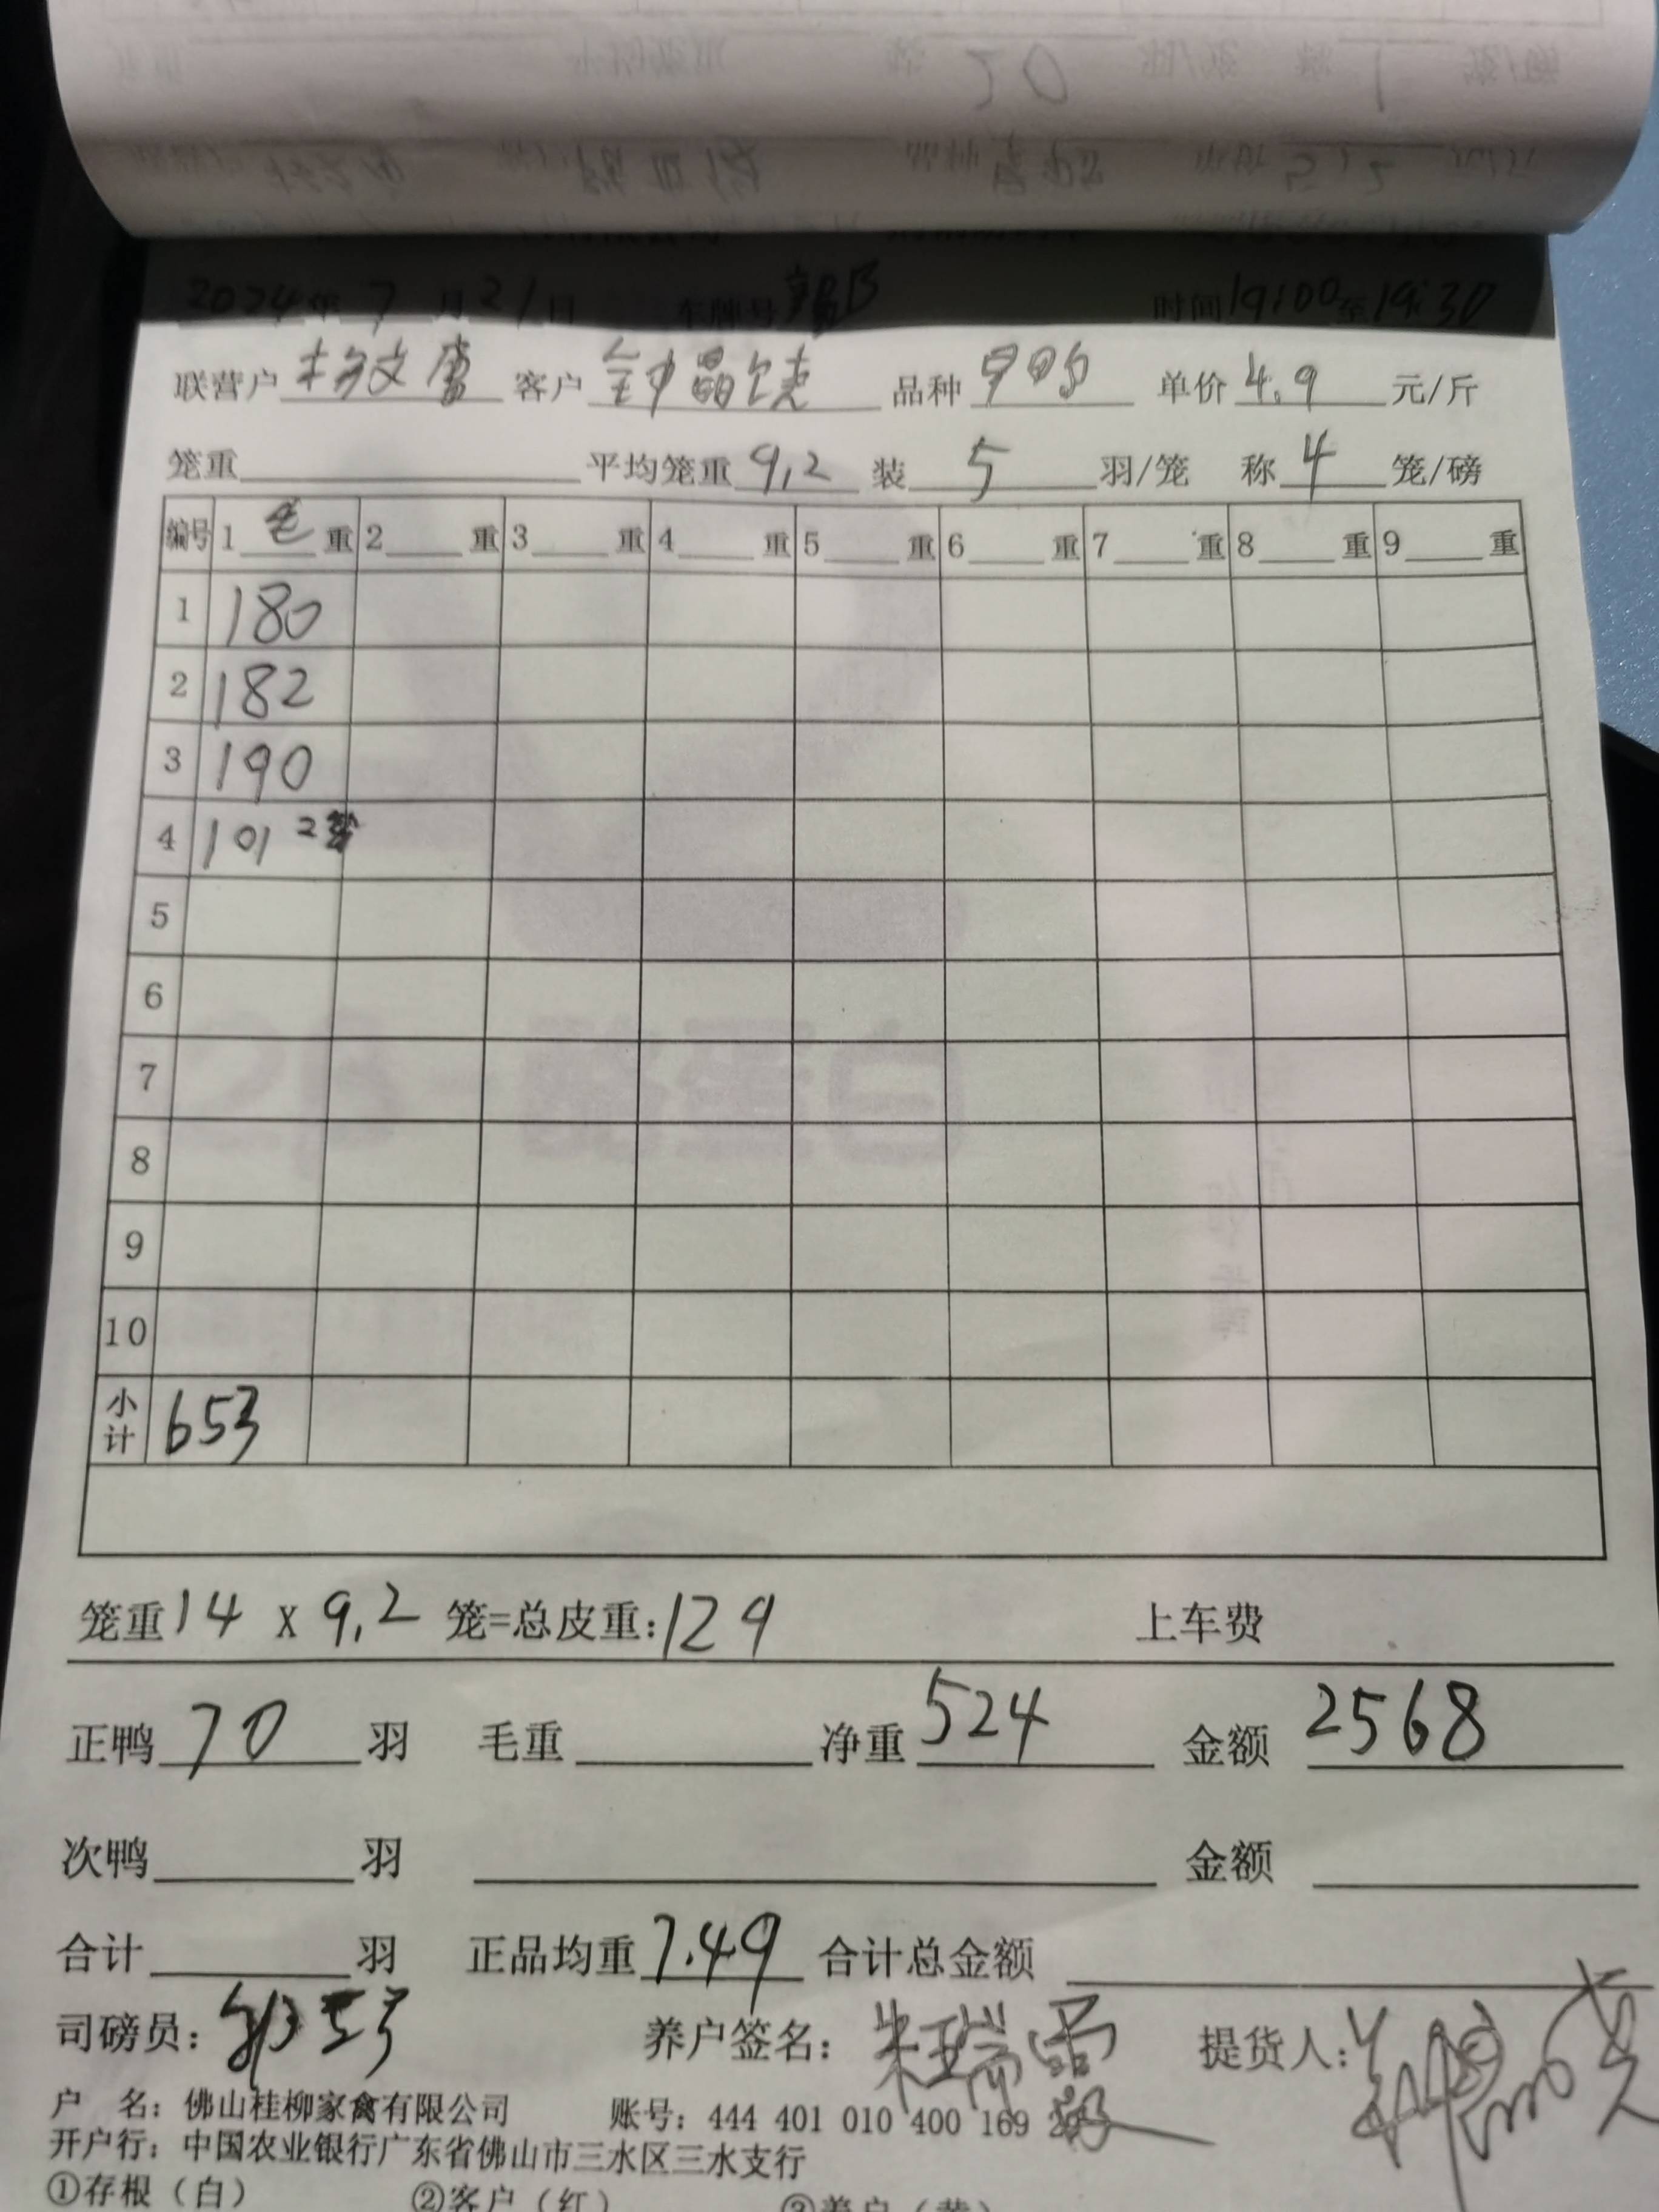 2024年 7 月 21 日 车牌号 粤B 时间 19:00 至 19:30
联营户 杨文 客户 钟晶尧 品种 单价 4.9 元/斤
笼重 平均笼重 9.2 装 5 羽/笼 称 4 笼/磅
编号 1 毛 重 2 重 3 重 4 重 5 重 6 重 7 重 8 重 9 重
1 180
2 182
3 190
4 101 2笼
5
6
7
8
9
10
小计 653
笼重 14 X 9.2 笼=总皮重: 129 上车费
正鸭 70 羽 毛重 净重 524 金额 2568
次鸭 羽 金额
合计 羽 正品均重 7.49 合计总金额
司磅员: 养户签名: 朱瑞 提货人:
户 名: 佛山桂柳家禽有限公司 账号: 444 401 010 400 169
开户行: 中国农业银行广东省佛山市三水区三水支行
①存根（白） ②客户（红） ③养户（黄）